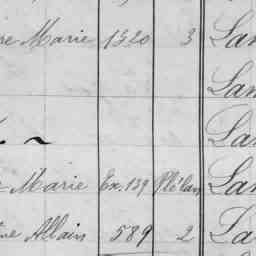 re Marie 1320 3 Lan
Lan
Lan
Marie Ex. 139 Plélan Lan
ne Allain 589 2 La